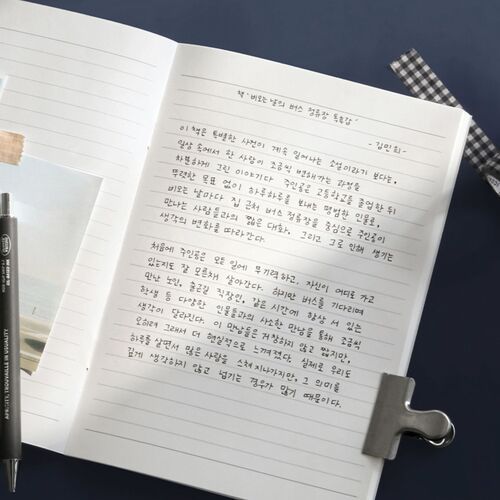 책 '비오는 날의 버스 정류장' 독후감
- 김민희 -
이 책은 특별한 사건이 계속 일어나는 소설이라기 보다는,
일상 속에서 한 사람이 조금씩 변해가는 과정을
차분하게 그린 이야기다. 주인공은 고등학교를 졸업한 뒤
뚜렷한 목표 없이 하루하루를 보내는 평범한 인물로,
비오는 날마다 집 근처 버스 정류장을 중심으로 주인공이
만나는 사람들과의 짧은 대화, 그리고 그로 인해 생기는
생각의 변화를 따라간다.
처음에 주인공은 모든 일에 무기력하고, 자신이 어디로 가고
있는지도 잘 모른채 살아간다. 하지만 버스를 기다리며
만난 노인, 출근길 직장인, 같은 시간에 항상 서 있는
학생 등 다양한 인물들과의 사소한 만남을 통해 조금씩
생각이 달라진다. 이 만남들은 거창하지 않고 짧지만,
오히려 그래서 더 현실적으로 느껴졌다. 실제로 우리도
하루를 살면서 많은 사람을 스쳐 지나가지만, 그 의미를
깊게 생각하지 않고 넘기는 경우가 많기 때문이다.
APRÈS-TY, TROUVAILLE IN USUALITY